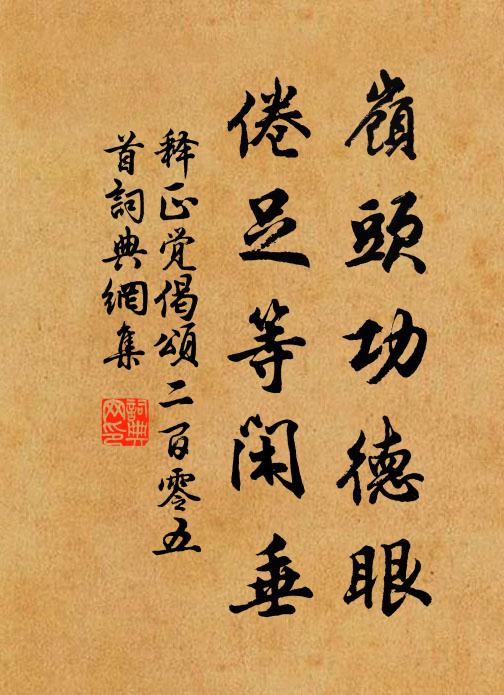 嶺頭功德眼
倦足等閑垂
释正觉偈頌二百零五
首詞典網集
詞典
网印